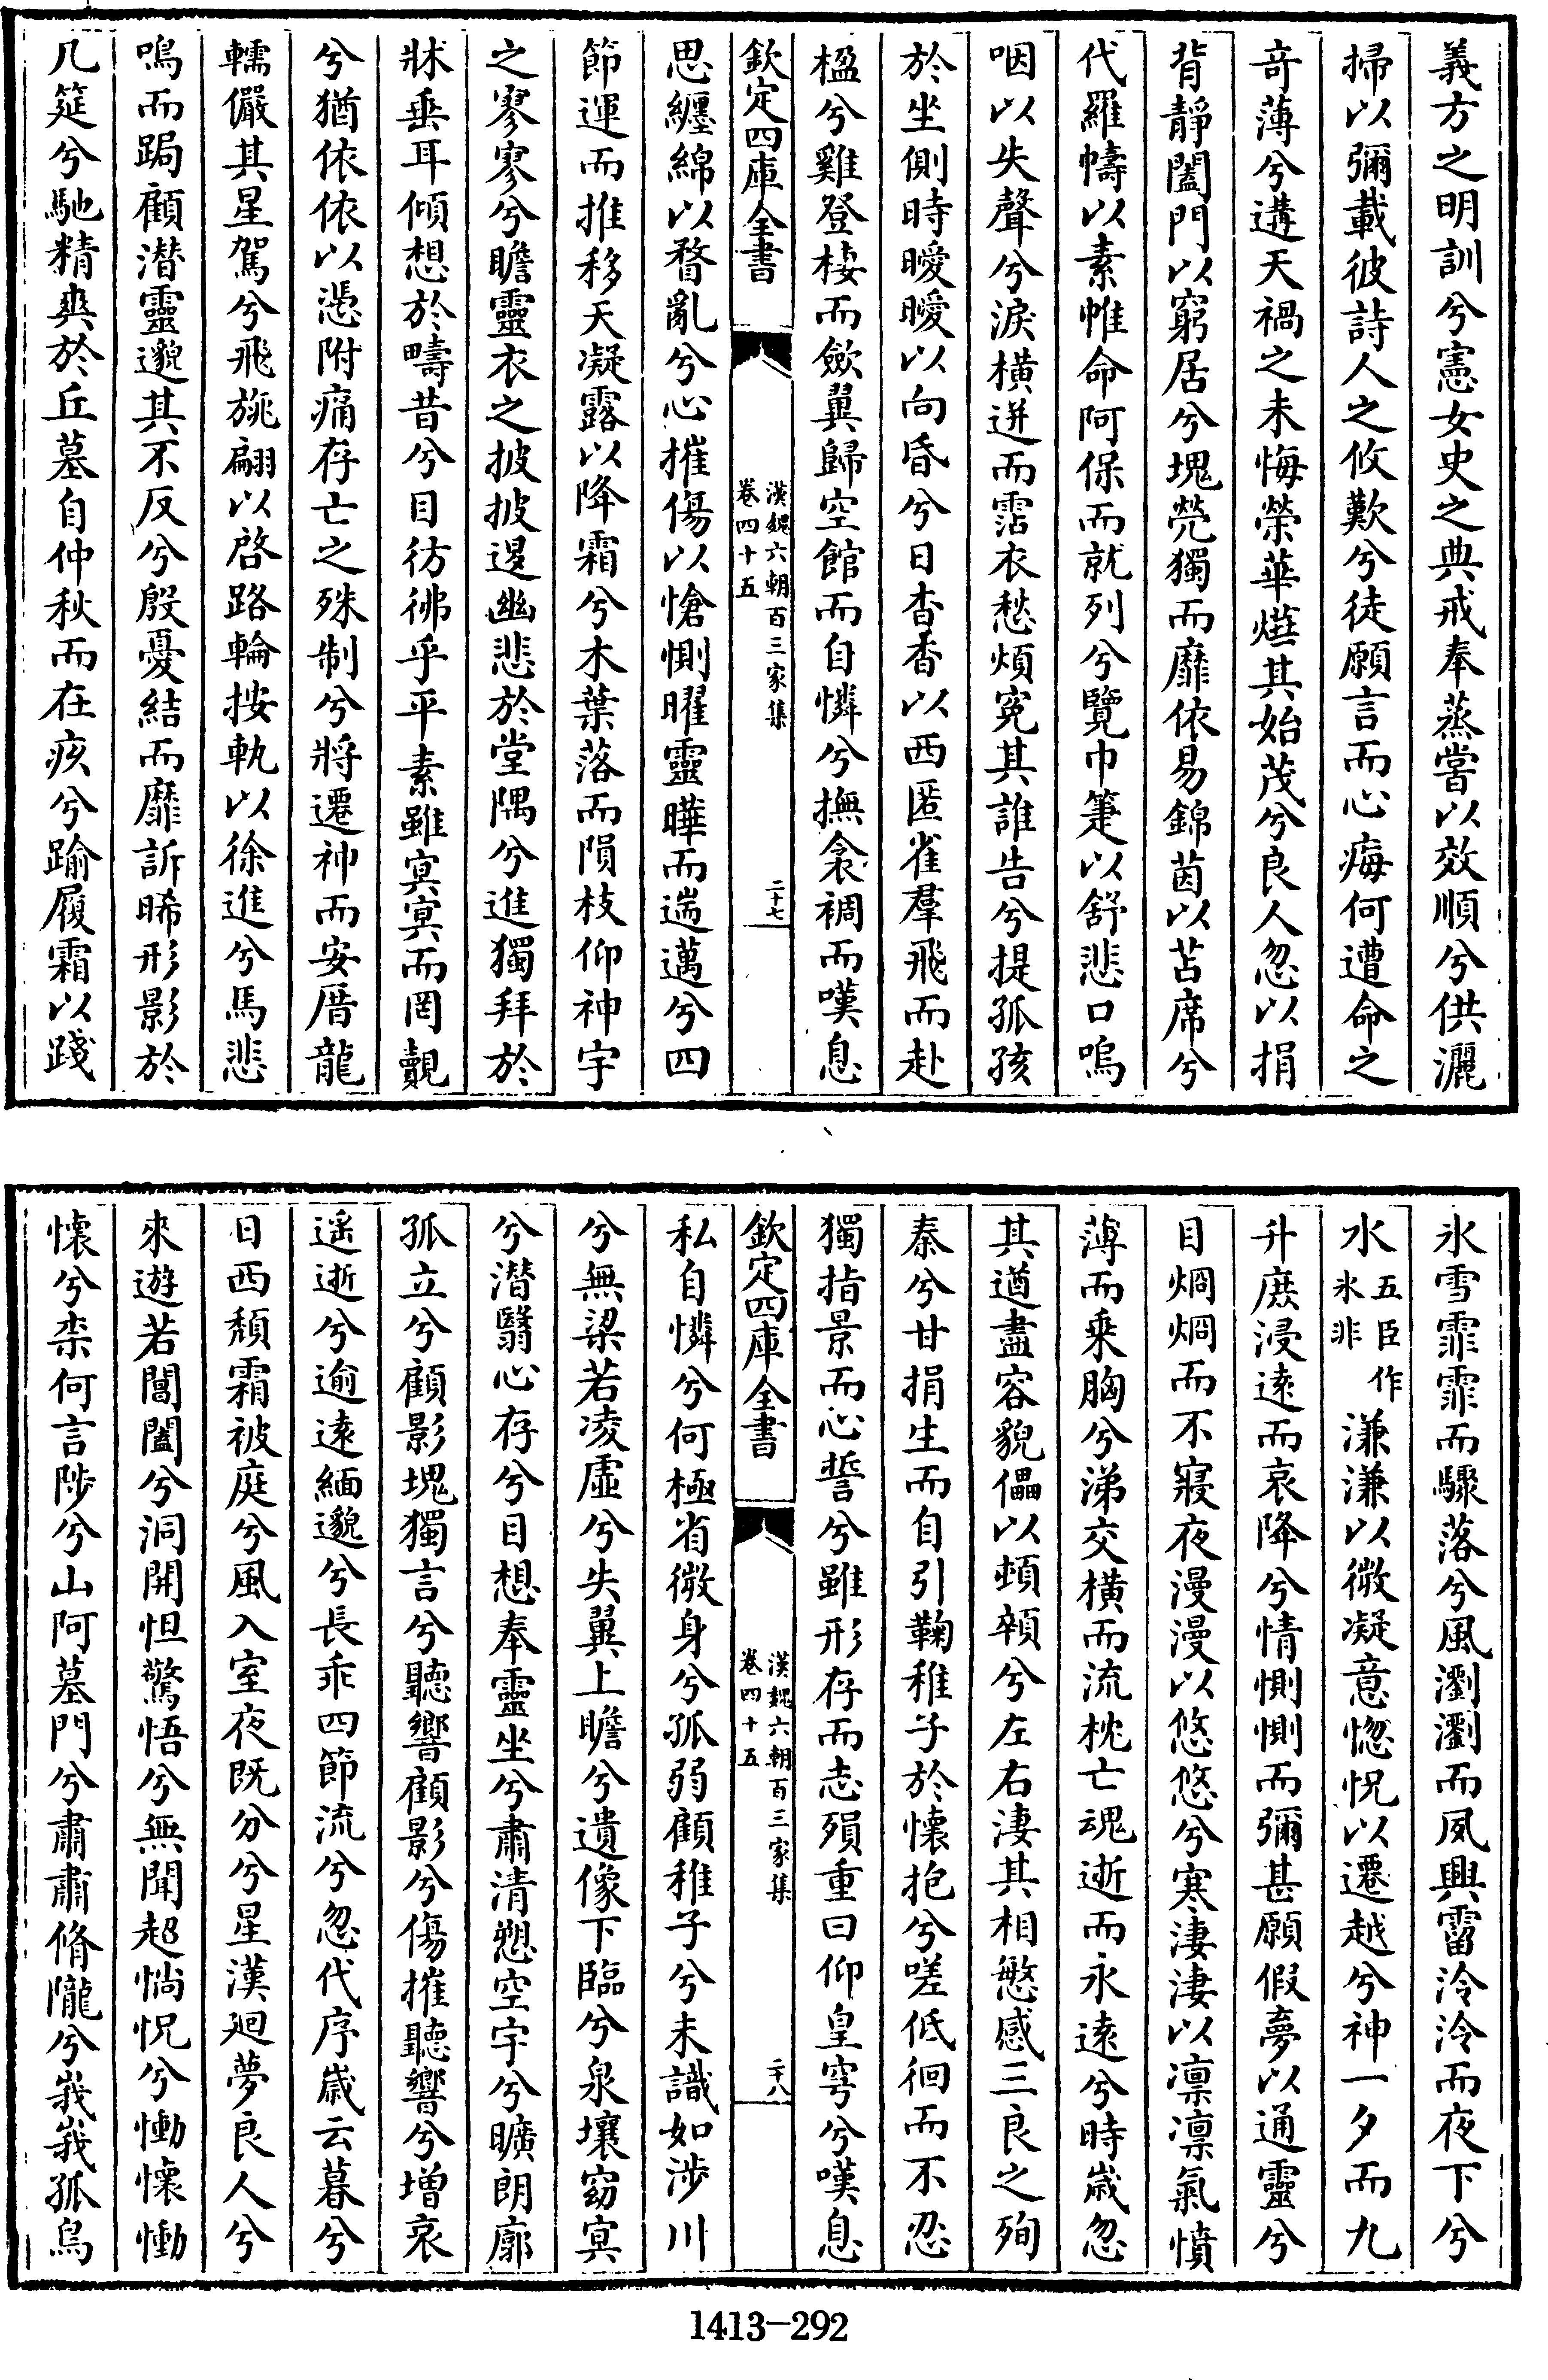 義方之明訓兮憲女史之典戒奉蒸嘗以效順兮供灑
掃以彌載彼詩人之攸歎兮徒願言而心痗何遭命之
竒薄兮遘天禍之未悔榮華㷸其始茂兮良人忽以捐
背靜闔門以窮居兮塊煢獨而靡依易錦茵以苫席兮
代羅幬以素帷命阿保而就列兮覽巾箑以舒悲口嗚
咽以失聲兮淚橫迸而霑衣愁煩寃其誰告兮提孤孩
於坐側時曖曖以向昏兮日杳杳以西匿雀羣飛而赴
楹兮雞登棲而歛翼歸空館而自憐兮撫衾裯而嘆息
欽定四庫全書
漢魏六朝百三家集
卷四十五
二十七
思纏綿以瞀亂兮心摧傷以愴惻曜靈曄而遄邁兮四
節運而推移天凝露以降霜兮木葉落而隕枝仰神宇
之寥寥兮瞻靈衣之披披退幽悲於堂隅兮進獨拜於
牀垂耳傾想於疇昔兮目彷彿乎平素雖冥冥而罔覿
兮猶依依以憑附痛存亡之殊制兮將遷神而安厝龍
轜儼其星駕兮飛旐翩以啓路輪按軌以徐進兮馬悲
鳴而跼顧潛靈邈其不反兮殷憂結而靡訴睎形影於
几筵兮馳精爽於丘墓自仲秋而在疚兮踰履霜以踐
氷雪霏霏而驟落兮風瀏瀏而夙興霤泠泠而夜下兮
水五臣作氷非溓溓以微凝意惚怳以遷越兮神一夕而九
升庶浸遠而哀降兮情惻惻而彌甚願假夢以通靈兮
目烱烱而不寢夜漫漫以悠悠兮寒淒淒以凛凛氣憤
薄而乗胸兮涕交橫而流枕亡魂逝而永遠兮時嵗忽
其遒盡容貌儡以頓顇兮左右淒其相慜感三良之殉
秦兮甘捐生而自引鞠稚子於懷抱兮嗟低徊而不忍
獨指景而心誓兮雖形存而志殞重曰仰皇穹兮嘆息
欽定四庫全書
漢魏六朝百三家集
卷四十五
二十八
私自憐兮何極省微身兮孤弱顧稚子兮未識如涉川
兮無梁若凌虛兮失翼上瞻兮遺像下臨兮泉壤窈冥
兮潛翳心存兮目想奉靈坐兮肅清愬空宇兮曠朗廓
孤立兮顧影塊獨言兮聽響顧影兮傷摧聽響兮增哀
遥逝兮逾遠緬邈兮長乖四節流兮忽代序嵗云暮兮
日西頽霜被庭兮風入室夜既分兮星漢廻夢良人兮
來遊若閶闔兮洞開怛驚悟兮無聞超惝怳兮慟懷慟
懷兮柰何言陟兮山阿墓門兮肅肅脩隴兮峩峩孤鳥
1413-292